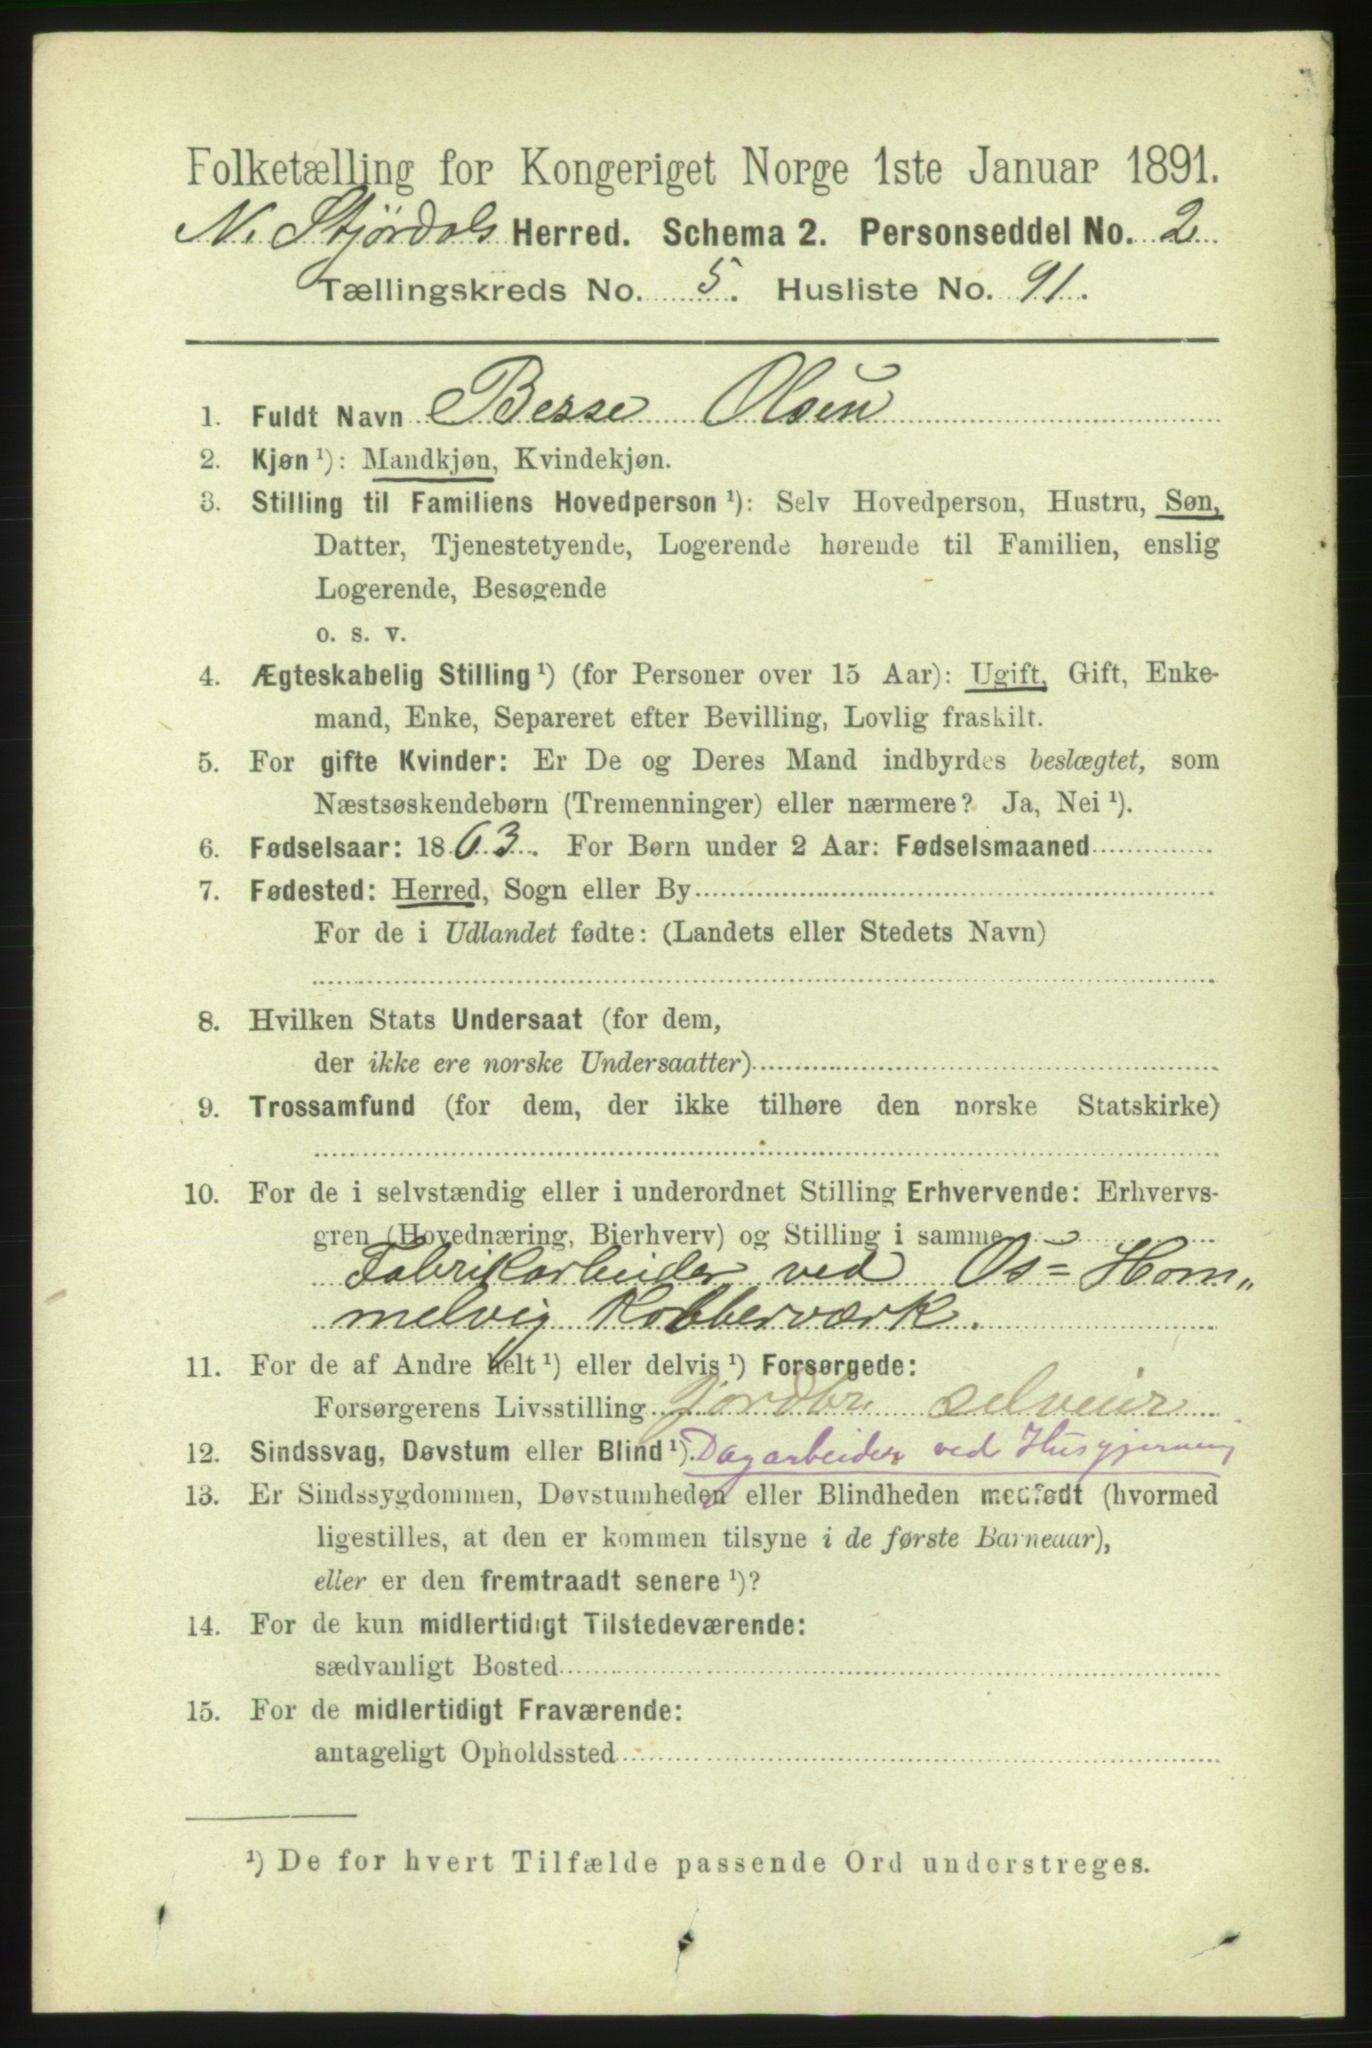 Folketælling for Kongeriget Norge 1ste Januar 1891.
N. Stjørdals Herred. Schema 2. Personseddel No. 2
Tællingskreds No. 5. Husliste No. 91.
1. Fuldt Navn Besse Olsen
2. Kjøn ¹): Mandkjøn, Kvindekjøn.
3. Stilling til Familiens Hovedperson ¹): Selv Hovedperson, Hustru, Søn,
Datter, Tjenestetyende, Logerende hørende til Familien, enslig
Logerende, Besøgende
o. s. v.
4. Ægteskabelig Stilling ¹) (for Personer over 15 Aar): Ugift, Gift, Enke-
mand, Enke, Separeret efter Bevilling, Lovlig fraskilt.
5. For gifte Kvinder: Er De og Deres Mand indbyrdes beslægtet, som
Næstsøskendebørn (Tremenninger) eller nærmere? Ja, Nei ¹).
6. Fødselsaar: 1863. For Børn under 2 Aar: Fødselsmaaned
7. Fødested: Herred, Sogn eller By
For de i Udlandet fødte: (Landets eller Stedets Navn)
8. Hvilken Stats Undersaat (for dem,
der ikke ere norske Undersaatter)
9. Trossamfund (for dem, der ikke tilhøre den norske Statskirke)
10. For de i selvstændig eller i underordnet Stilling Erhvervende: Erhvervs-
gren (Hovednæring, Bierhverv) og Stilling i samme
Fabrikarbeider ved Os= Hom„
melvig Kobberværk.
11. For de af Andre helt ¹) eller delvis ¹) Forsørgede:
Forsørgerens Livsstilling jordbr. selveier
12. Sindssvag, Døvstum eller Blind ¹). Dagarbeider ved Husgjerning
13. Er Sindssygdommen, Døvstumheden eller Blindheden medfødt (hvormed
ligestilles, at den er kommen tilsyne i de første Barneaar),
eller er den fremtraadt senere ¹)?
14. For de kun midlertidigt Tilstedeværende:
sædvanligt Bosted
15. For de midlertidigt Fraværende:
antageligt Opholdssted
¹) De for hvert Tilfælde passende Ord understreges.